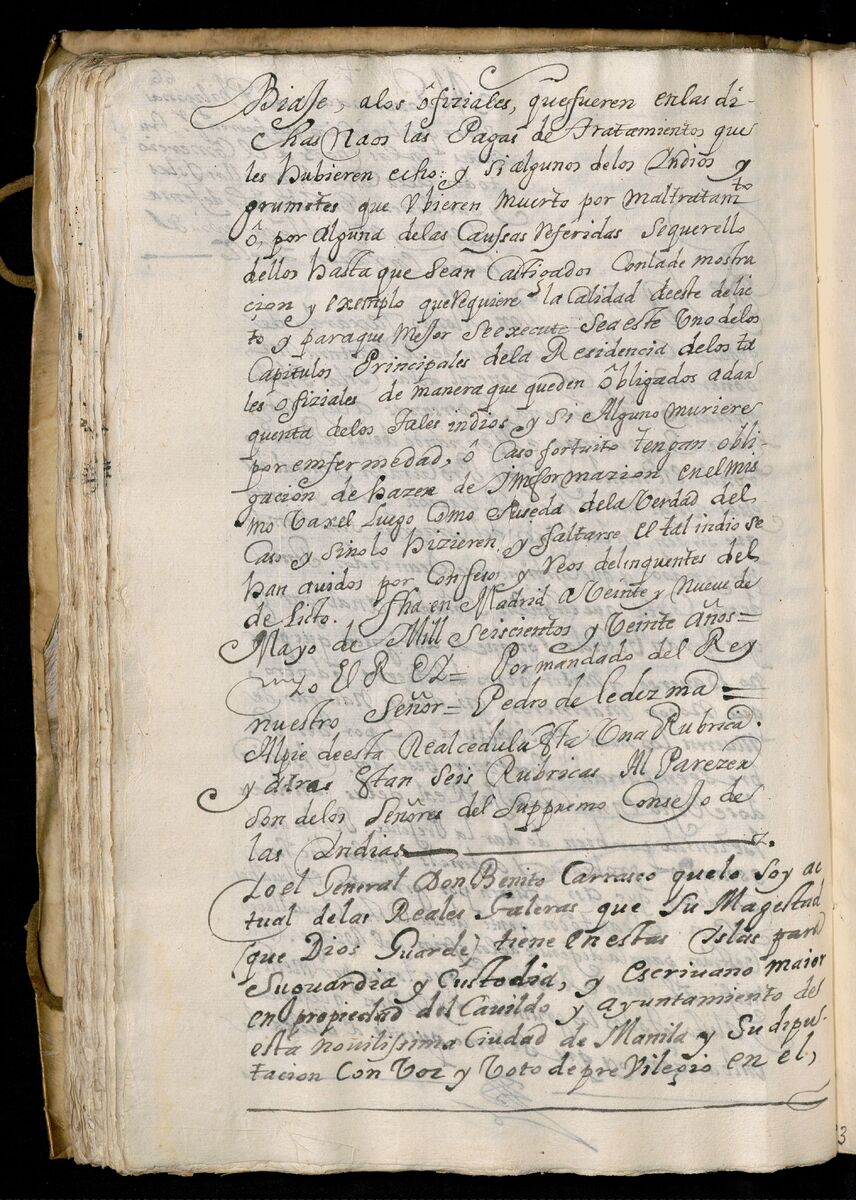 Biaje, alos ôfiziales, que fueren enlas di-
chas Naos las Pagas de tratamientos que
les hubieren echo: y si algunos delos Indios y
grumetes que Vbieren muerto por maltratamto
ô, por alguna delas Caussas referidas sequerello
dellos hasta que sean Castigados Conlademostra
cion y exemplo querequiere la Calidad deeste delic
to y paraque Mejor se execute seaeste Vno delos
Capitulos Principales dela Residencia delos ta
les ôfiziales de maneraque queden ôbligados adar
quenta delos tales indios y si Alguno muriere
por emfermedad, ô Caso fortuito tengan obli-
gacion de hazer de Imformazion en el mis
mo Vaxel Luego Como suseda dela Verdad del
Caso y sinolo hizieren, y faltarse el tal indio se
han auidos por Confesos y Reos delinquentes del
de Licto. Fha en Madrid a Veinte y Nueve de
Mayo de Mill seiscientos y Veinte años=
Yo El REY= Pormandado del Rey
nuestro Señor= Pedro de ledezma=
Alpie deesta Realcedula Esta Una Rubrica.
y atras Estan seis Rubricas Al Parezer
son delos Señores del Suppremo Consejo de
las Indias
Yo el General Don Benito Carrasco quelo soy ac
tual delas Reales Galeras que Su Magestad
(que Dios Guarde) tiene enestas Islas para
Suguardia y Custodia, y escrivano maior
en propiedad del Cavildo y ayuntamiento de
esta novilissima Ciudad de Manila y Su dipu-
tacion Con Voz y Voto de preVilegio en el,